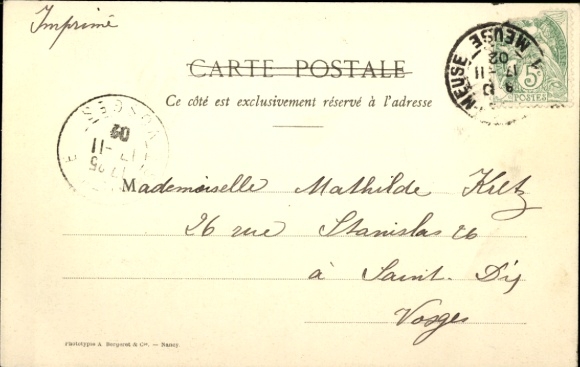 Imprimé
CARTE POSTALE
Ce côté est exclusivement réservé à l'adresse
MEUSE
MEUSE
17 - 11
02
5c
POSTES
VOSGES
17 - 11
02
Mademoiselle Mathilde Kretz
26 rue Stanislas 26
à Saint-Dié
Vosges
Phototypie A. Bergeret & Cie. — Nancy.